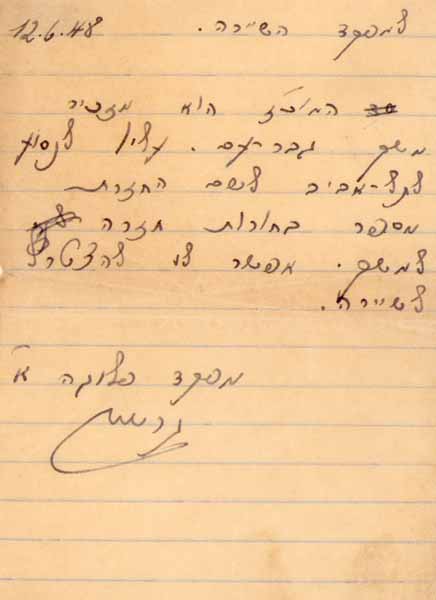 12.6.48
למפקד השיירה.
המוכ"ז הוא מזכיר
משק גבר-עם. עליו לנסוע
לתל-אביב לשם החזרת
מספר בחורות חזרה
למשק. אפשר לו להצטרף
לשיירה.
מפקד פלוגה א'